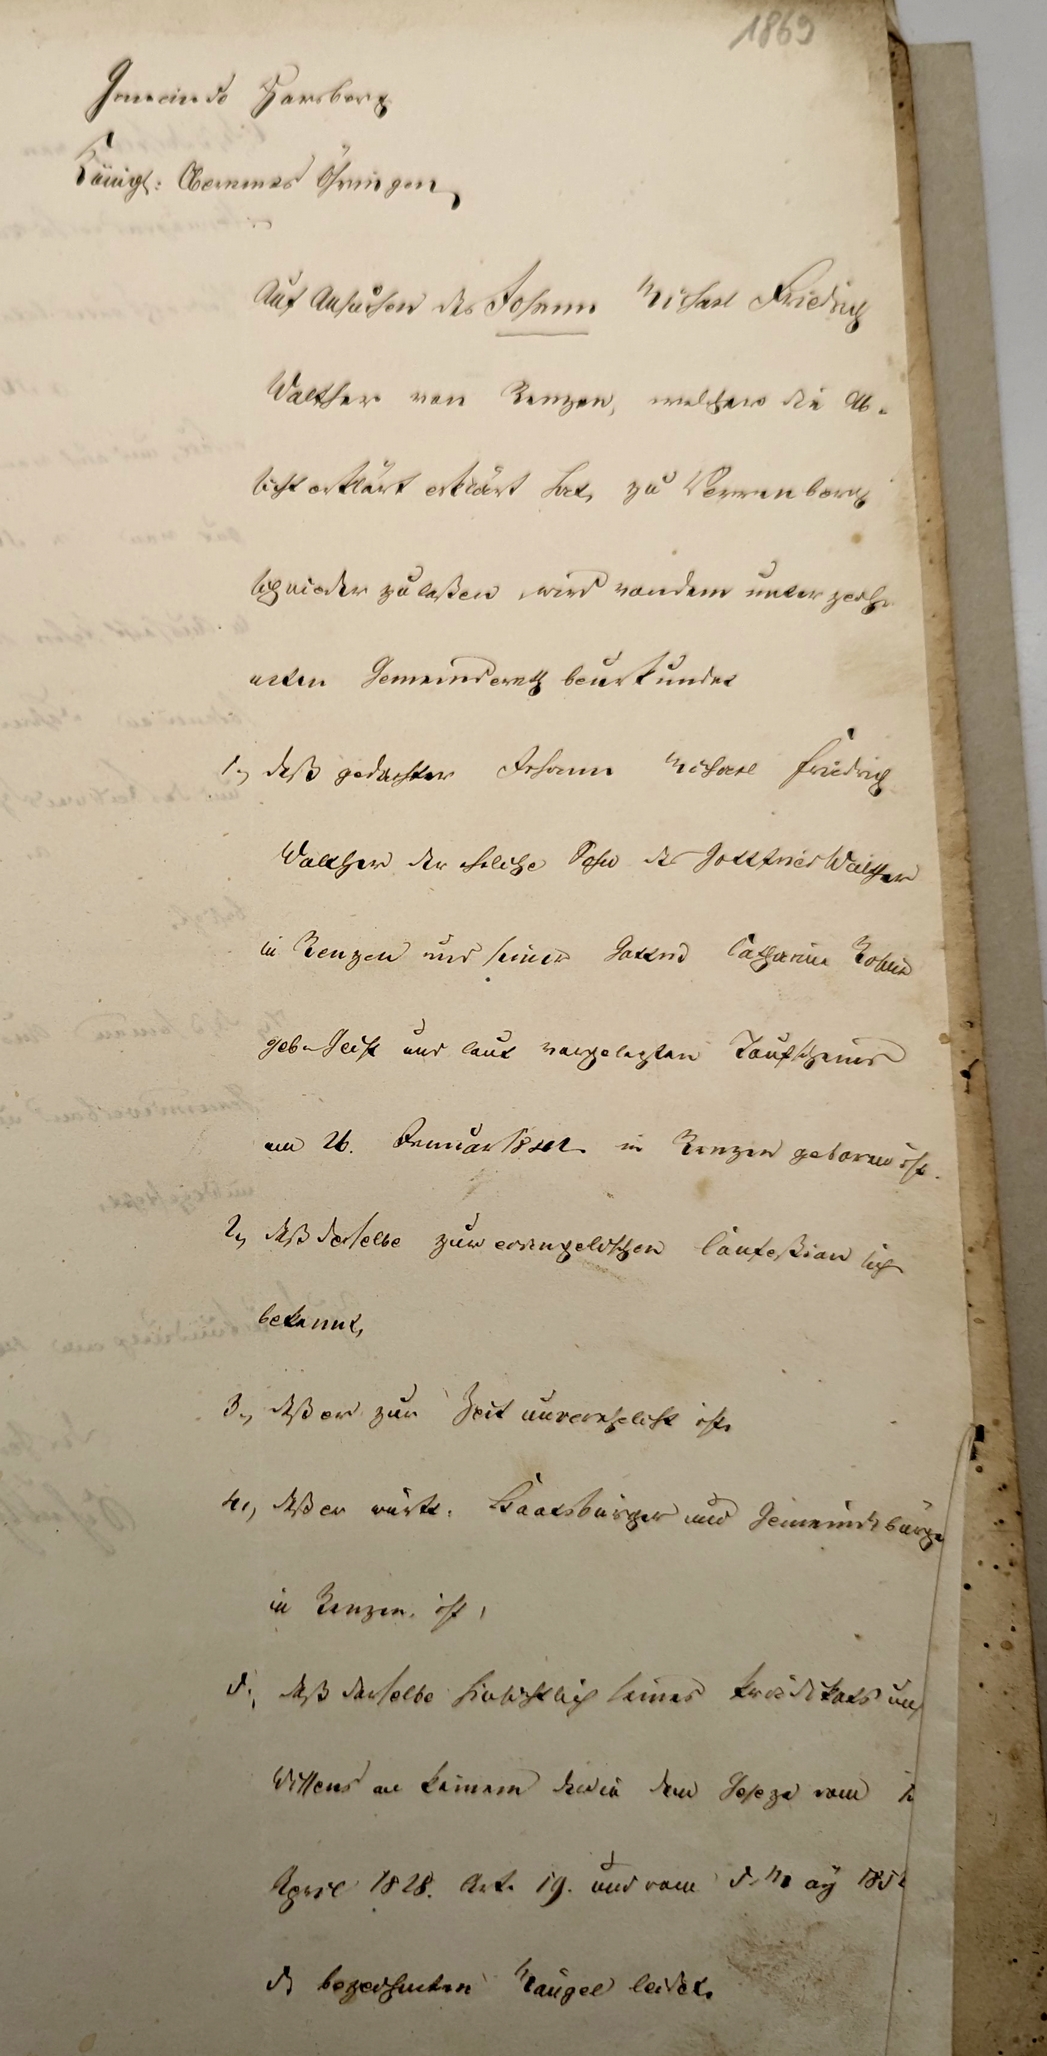 1869
Gemeinde Harsberg
Königl: Oberamts Öhringen
Auf Ansuchen des Johann Michael Friedrich
Walther von Renzen, welcher die Ab-
sicht erklärt erklärt hat, zu Verrenberg
sich nieder zu laßen, wird von dem unterzeich-
neten Gemeinderath beurkundet
1., daß gedachter Johann Michael Friedrich
Walther der eheliche Sohn des Gottfried Walther
in Renzen und seiner Gattin Catharine
geb. und laut vorgelegten Taufscheins
am 26. Januar in Renzen geboren ist.
2., daß derselbe zur evangelischen Confeßion sich
bekennt,
3., daß er zur Zeit unverehelicht ist,
4., daß er württ. Staatsbürger und Gemeindebürger
in Renzen ist,
5., daß derselbe hinsichtlich seines Prädikats und
Wissens an keinem der in dem Geseze vom
April 1828. Art. 19. und vom 5. May
bezeichneten Mängel leidet.